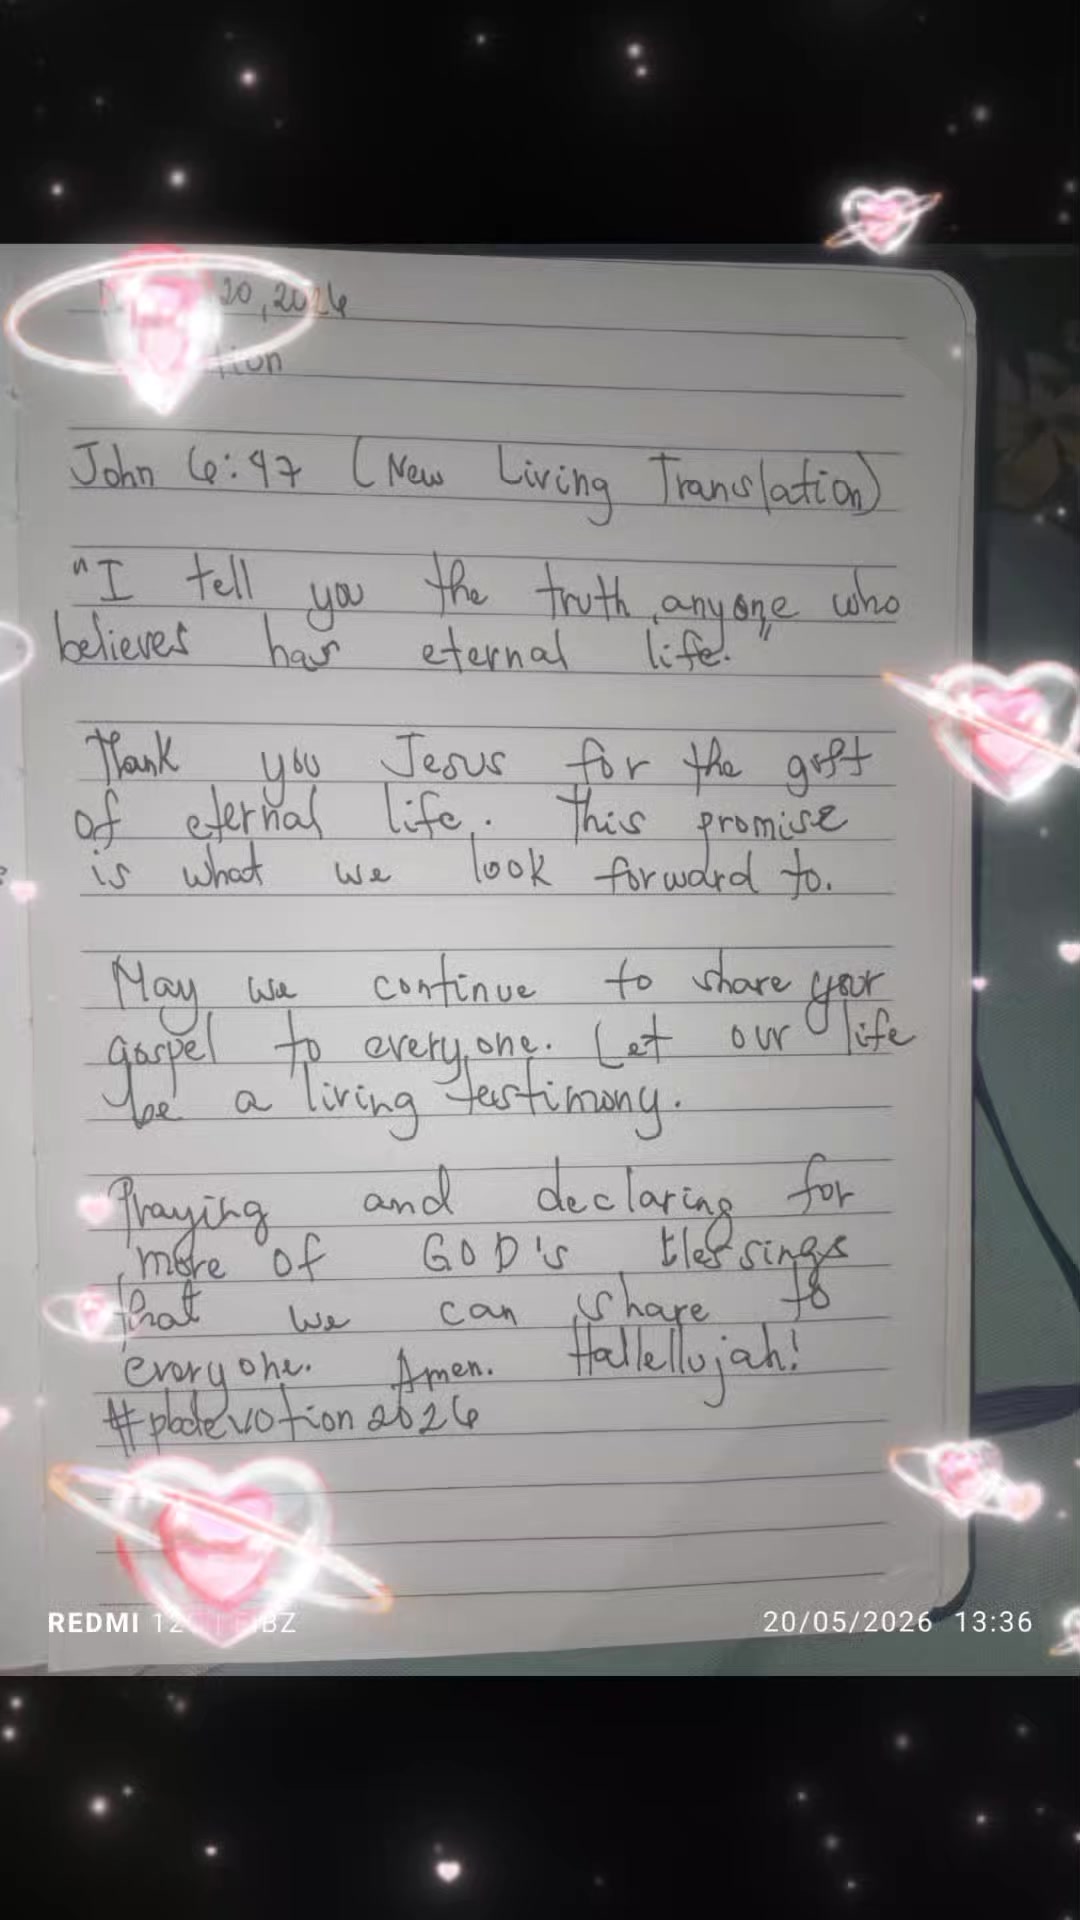 20, 2026
tion
John 6:47 (New Living Translation)
"I tell you the truth, anyone who
believes has eternal life."
Thank you Jesus for the gift
of eternal life. This promise
is what we look forward to.
May we continue to share your
gospel to everyone. Let our life
be a living testimony.
Praying and declaring for
more of GOD's blessings
that we can share to
everyone. Amen. Hallellujah!
#pbdevotion2026
REDMI 12
20/05/2026 13:36